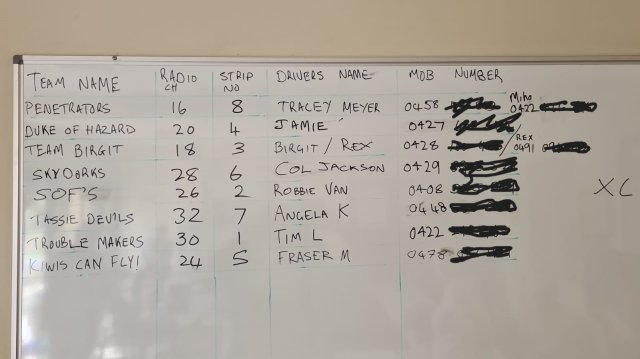 TEAM NAME RADIO CH STRIP NO DRIVERS NAME MOB NUMBER
PENETRATORS 16 8 TRACEY MEYER 0458 Miho 0422
DUKE OF HAZARD 20 4 JAMIE 0427
TEAM BIRGIT 18 3 BIRGIT / REX 0428 / REX 0491
SKYDORKS 28 6 COL JACKSON 0429
SOF'S 26 2 ROBBIE VAN 0408
XC
TASSIE DEVILS 32 7 ANGELA K 0448
TROUBLE MAKERS 30 1 TIM L 0422
KIWIS CAN FLY! 24 5 FRASER M 0478